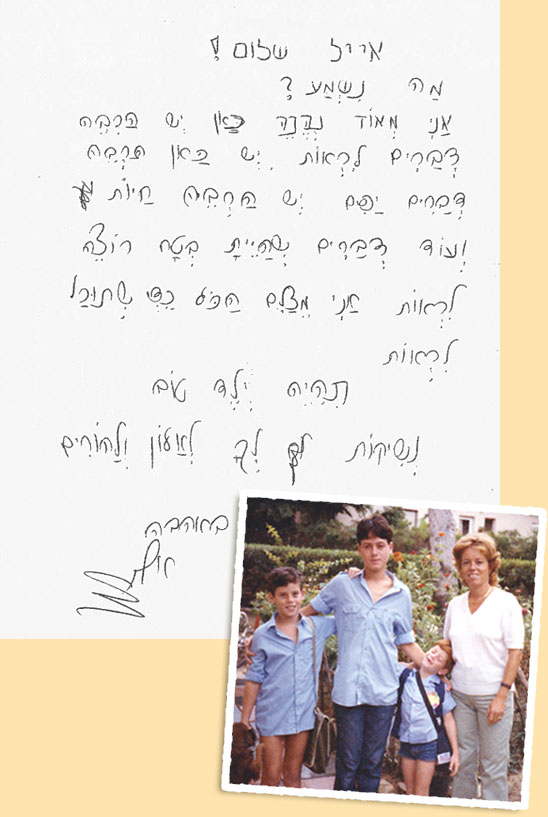 אייל שלום!
מַה נִשְמַע?
אֲנִי מְאוֹד נֶהֱנֶה כַּאן יֵש הַרְבֶּה
דְבָרִים לִרְאוֹת יֵש כַּאן הַרְבֶּה
דְבָרִים יָפִים יֵש הַרְבֶּה חַיוֹת
וְעוֹד דְבָרִים שֶהָיִיתָ בֶּטַח רוֹצֶה
לִרְאוֹת אֲנִי מְצַלֵם הַכֹּל כְּדֵי שֶתוּכַל
לִרְאוֹת
תִהְיֶה יֶלֶד טוֹב
נְשִיקוֹת לְךָ לְאַלוֹן וְלַהוֹרִים
באהבה